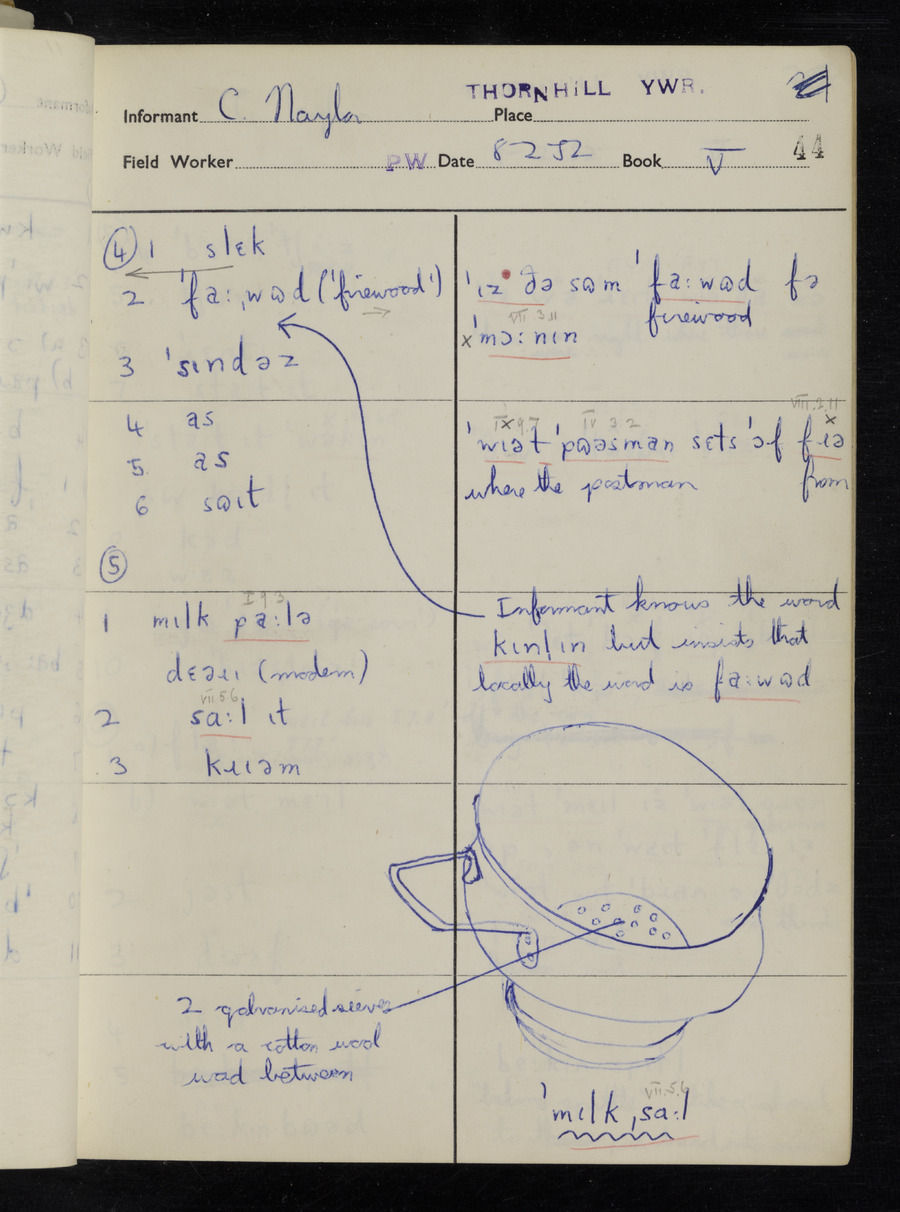 THORNHILL YWR.
Informant C. Naylor Place
Field Worker PW Date 8 2 52 Book V 44
④ 1 slɛk
2 ˈfaː,wɷd ('firewood')
3 ˈsɪndəz
4 as
5 as
6 sɷɪt
⑤
1 mɪlk paːlə
I 9 3
dɛəɹɪ (modern)
VII.5.6
2 saːl ɪt
3 kɹɪəm
2 galvanised sieves
with a cotton wool
wad between
ˈɪz ðə sɷm ˈfaːwɷd fə
firewood
VII 3.11
x ˈmɔːnɪn
VIII.2.11
IX 9.7 IV 3.2 x
ˈwɪət ˈpɷəsman sɛts ˈɔf fɹə
where the postman from
Informant knows the word
kɪnlɪn but insists that
locally the word is faːwɷd
VII.5.6
ˈmɪlk ,saːl